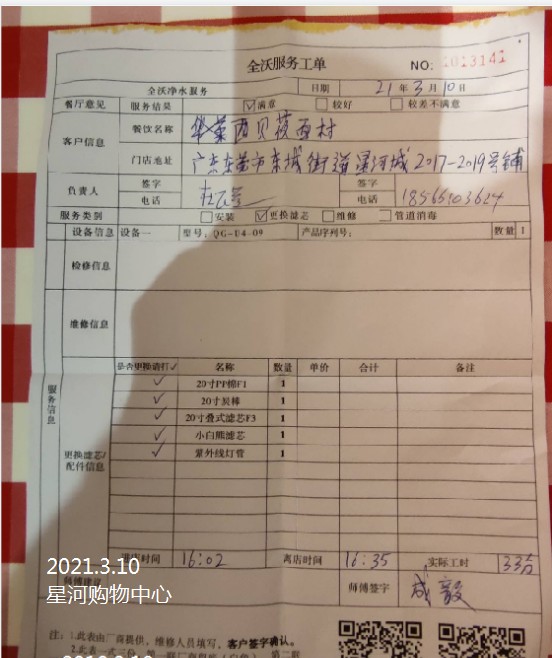 全沃服务工单
NO: 2013141
全沃净水服务 日期 21年3月10日
餐厅意见 服务结果 ☑满意 □较好 □较差不满意
客户信息 餐饮名称 华莱西贝莜面村
门店地址 广东东莞市东城街道星河城2017-2019号铺
负责人 签字 签字
电话 电话 18565103624
服务类别 □安装 ☑更换滤芯 □维修 □管道消毒
服务信息
设备信息 设备一 型号: QG-U4-09 产品序列号: 数量 1
检修信息
维修信息
更换滤芯/配件信息
是否更换请打✓ 名称 数量 单价 合计 备注
✓ 20寸PP棉F1 1
✓ 20寸炭棒 1
✓ 20寸叠式滤芯F3 1
✓ 小白熊滤芯 1
✓ 紫外线灯管 1
进店时间 16:02 离店时间 16:35 实际工时 33分
师傅建议 师傅签字 成毅
2021.3.10
星河购物中心
注: 1.此表由厂商提供，维修人员填写，客户签字确认。
2.此表一式三份